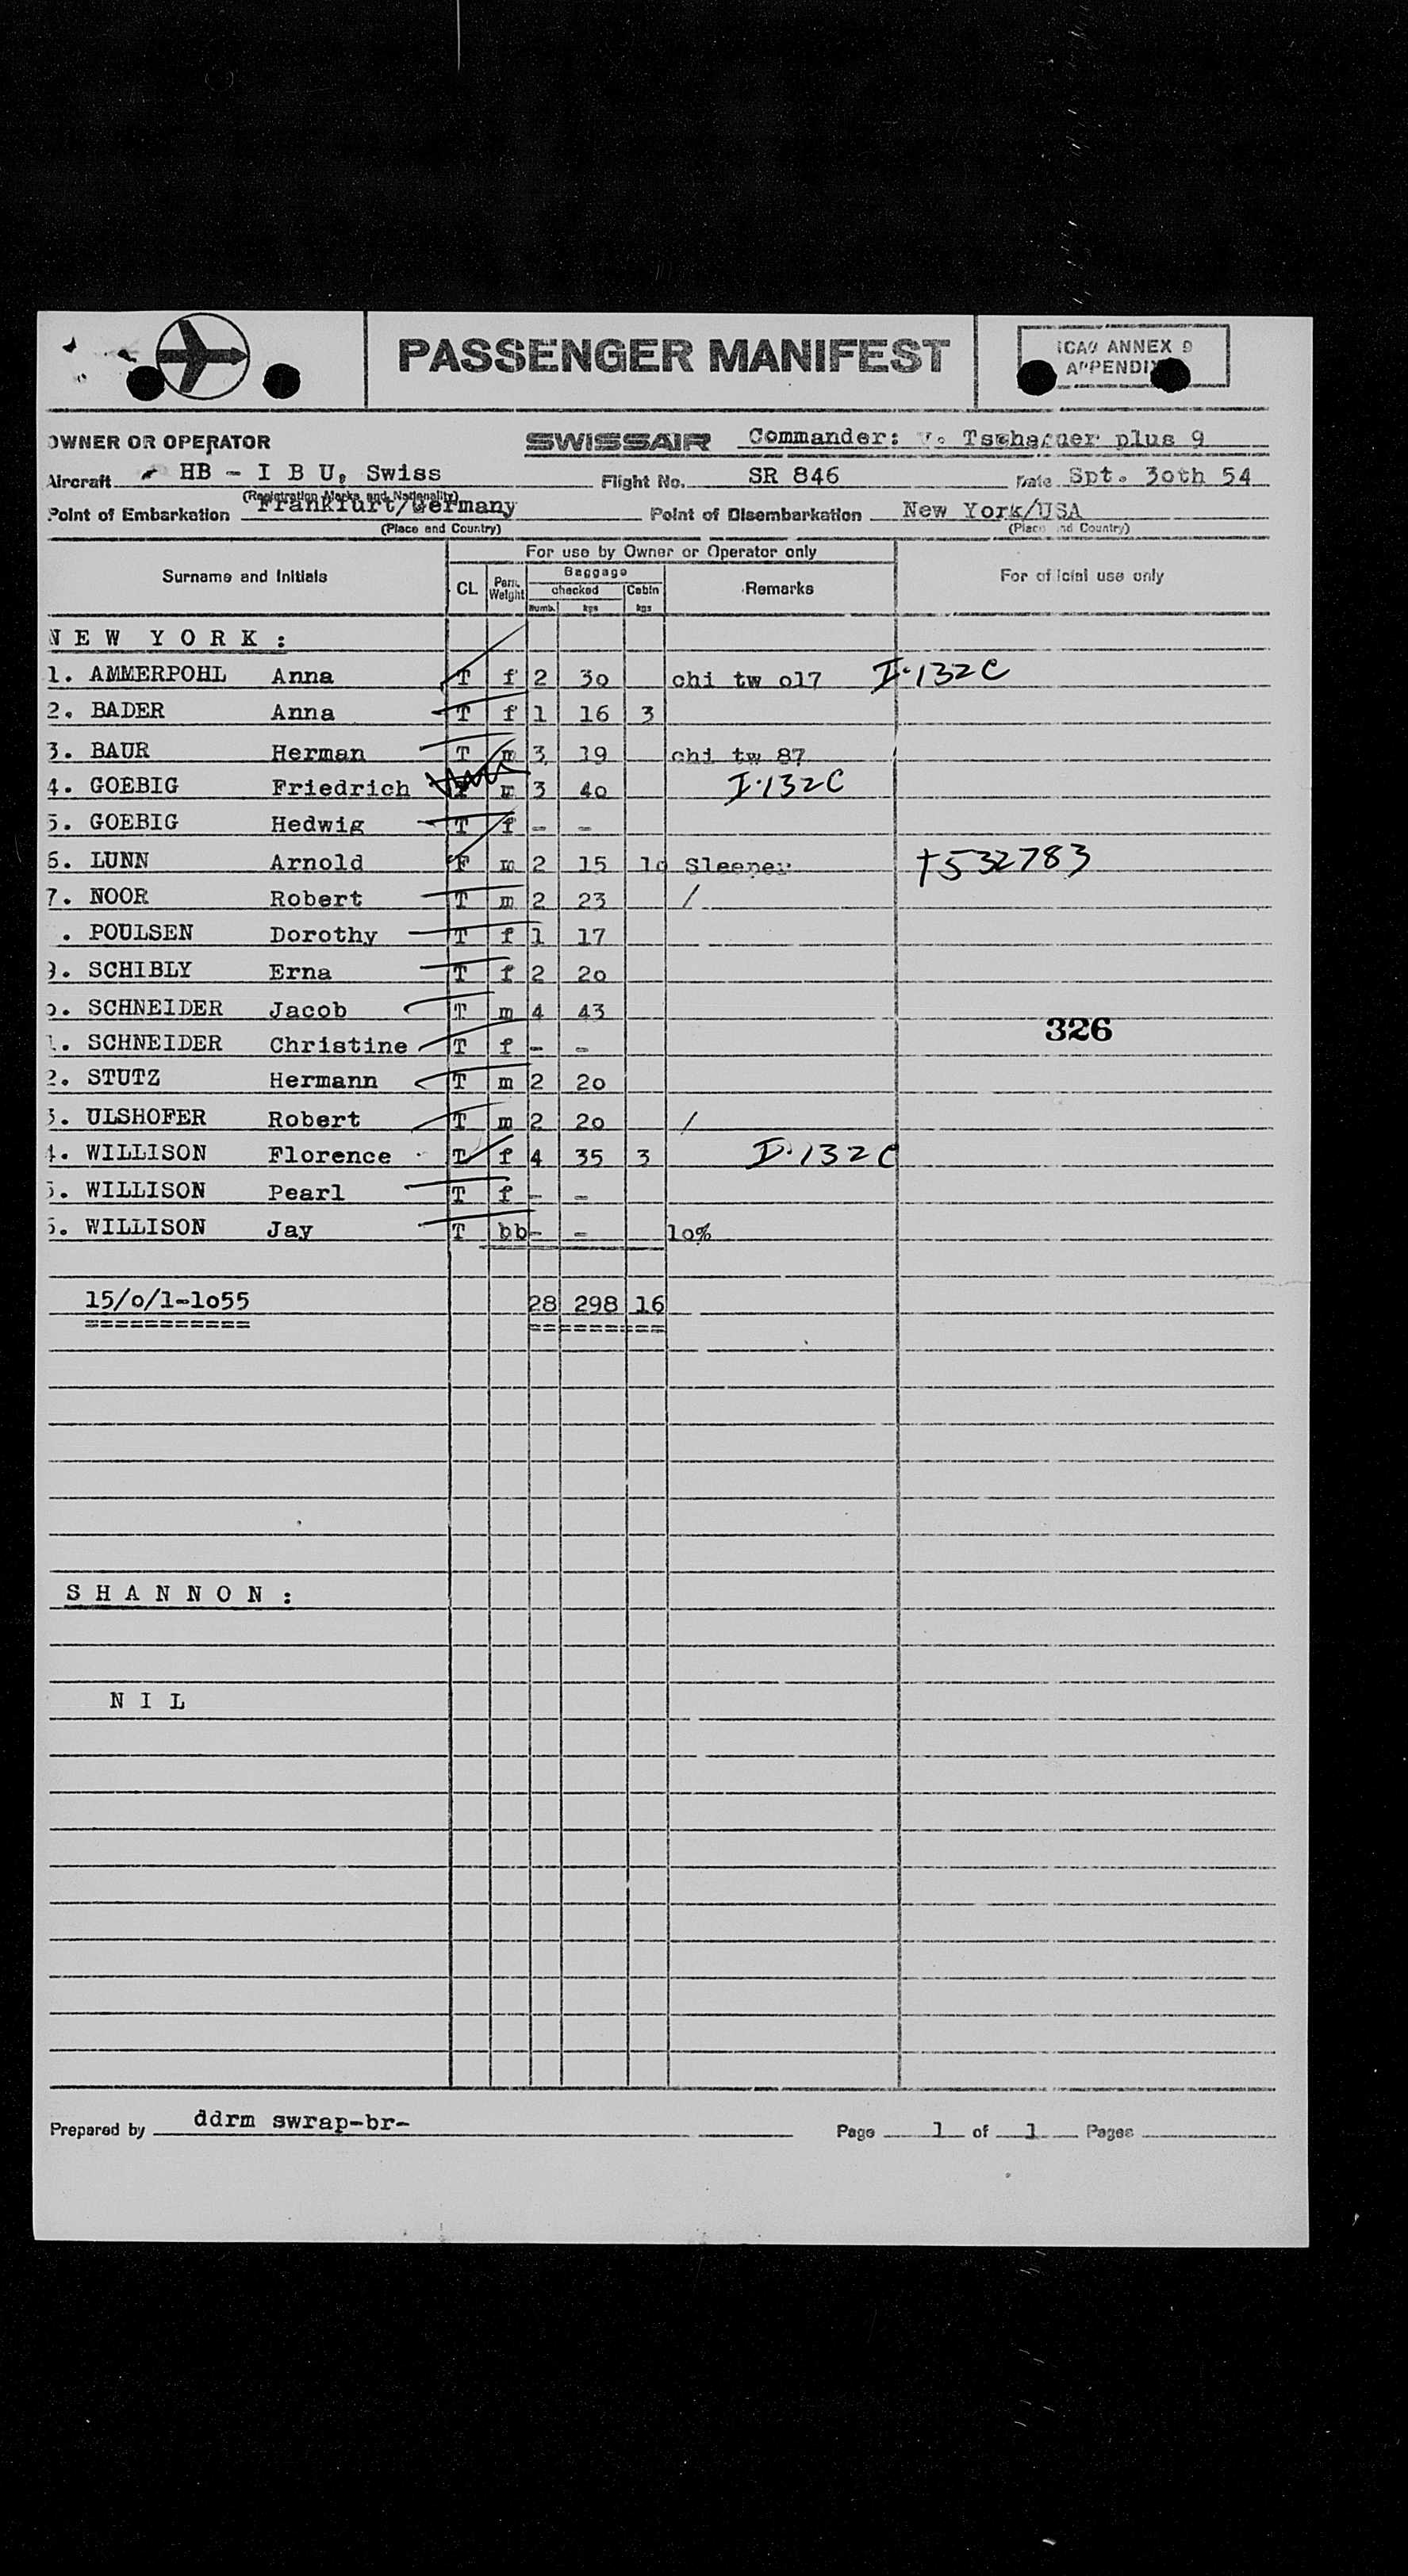 PASSENGER MANIFEST
ICAO ANNEX 9
APPENDIX
OWNER OR OPERATOR SWISSAIR Commander: v. Tscharner plus 9
Aircraft HB - I B U, Swiss Flight No. SR 846 Date Spt. 3oth 54
(Registration Marks and Nationality)
Point of Embarkation Frankfurt/Germany Point of Disembarkation New York/USA
(Place and Country) (Place and Country)
For use by Owner or Operator only
Surname and Initials CL Pers. Weight Baggage Remarks For official use only
checked Cabin
Numb. kgs kgs
N E W Y O R K :
1. AMMERPOHL Anna T f 2 3o chi tw o17 I-132C
2. BADER Anna T f 1 16 3
3. BAUR Herman T m 3 19 chi tw 87
4. GOEBIG Friedrich m 3 4o I-132C
5. GOEBIG Hedwig T f - -
6. LUNN Arnold F m 2 15 1o Sleeper T532783
7. NOOR Robert T m 2 23 /
. POULSEN Dorothy T f 1 17
9. SCHIBLY Erna T f 2 2o
o. SCHNEIDER Jacob T m 4 43
326
1. SCHNEIDER Christine T f - -
2. STUTZ Hermann T m 2 2o
3. ULSHOFER Robert T m 2 2o /
4. WILLISON Florence T f 4 35 3 I-132C
5. WILLISON Pearl T f - -
6. WILLISON Jay T bb - - 1o%
15/o/1-1o55 28 298 16
=========== =========
S H A N N O N :
N I L
Prepared by ddrm swrap-br- Page 1 of 1 Pages